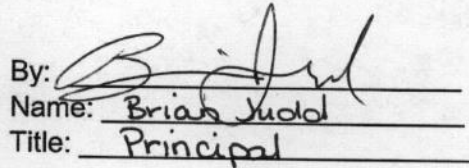 By:
Name: Brian Judd
Title: Principal